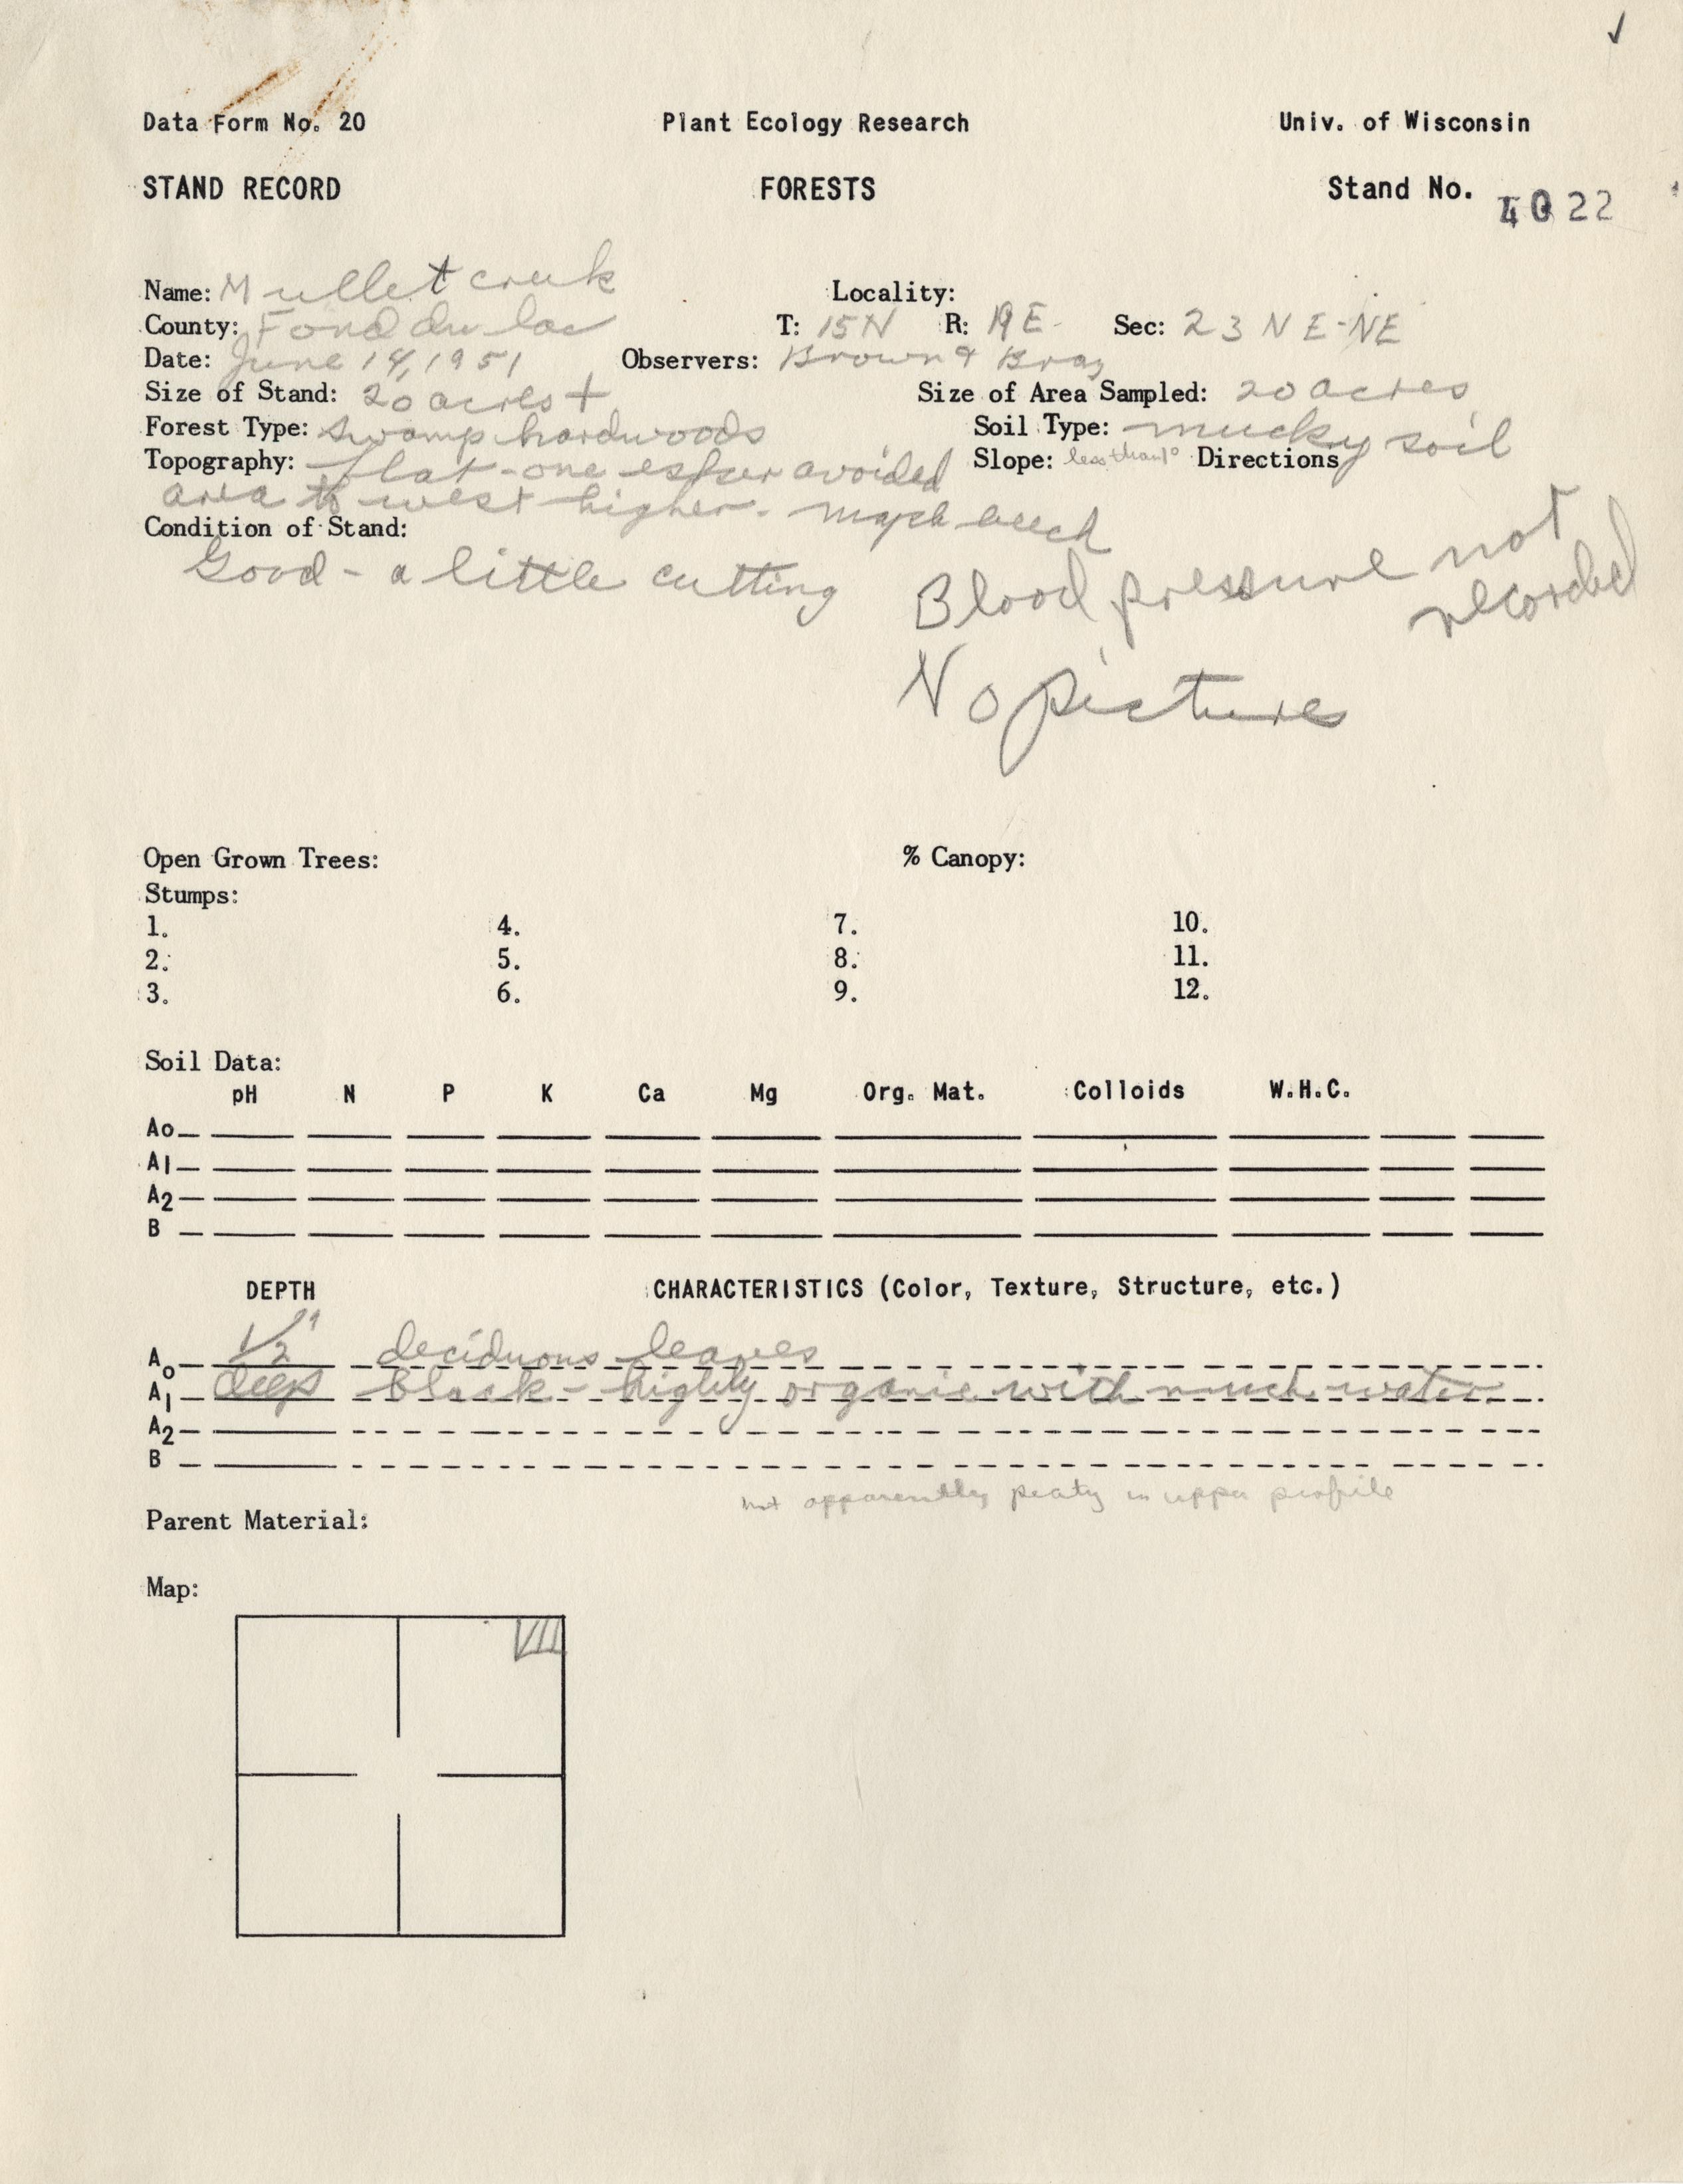 ✓
Data Form No. 20 Plant Ecology Research Univ. of Wisconsin
STAND RECORD FORESTS Stand No. 4022
Name: Mullet creek Locality:
County: Fond du lac T: 15N R: 19E Sec: 23 NE-NE
Date: June 14, 1951 Observers: Brown & Bray
Size of Stand: 20 acres + Size of Area Sampled: 20 acres
Forest Type: Swamp hardwoods Soil Type: mucky soil
Topography: flat - one esker avoided Slope: less than 1° Directions
area to west higher. much beech
Condition of Stand:
Good - a little cutting
Blood pressure not
recorded
No picture
Open Grown Trees: % Canopy:
Stumps:
1. 4. 7. 10.
2. 5. 8. 11.
3. 6. 9. 12.
Soil Data:
pH N P K Ca Mg Org. Mat. Colloids W.H.C.
Ao
A1
A2
B
DEPTH CHARACTERISTICS (Color, Texture, Structure, etc.)
Ao 1/2" deciduous leaves
A1 deep black - highly organic with much water
A2
B
not apparently peaty in upper profile
Parent Material:
Map: